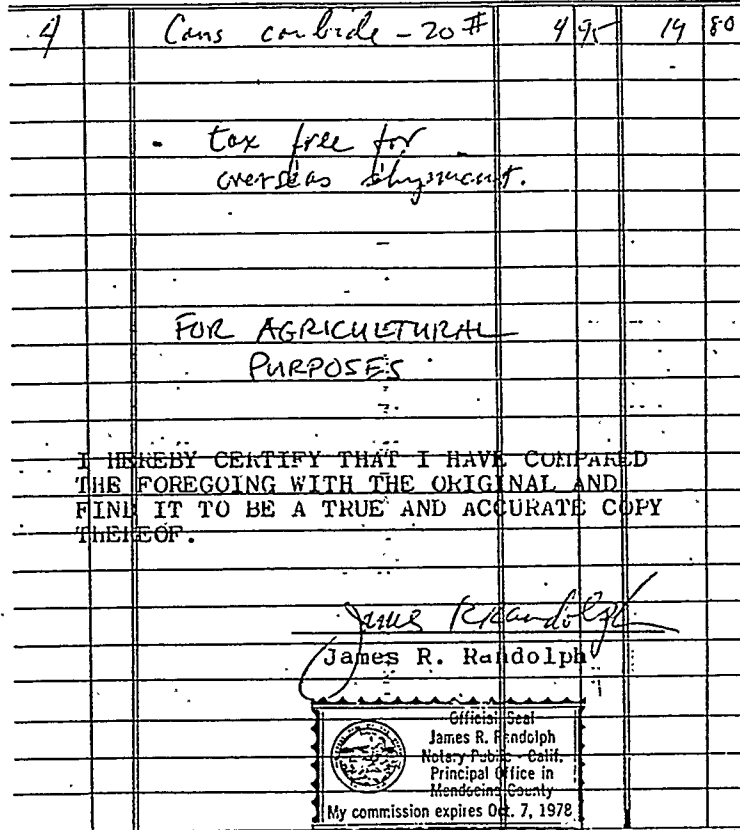 4 Cans carbide - 20 # 4 95 19 80
- tax free for
overseas shipment.
FOR AGRICULTURAL
PURPOSES
I HEREBY CERTIFY THAT I HAVE COMPARED
THE FOREGOING WITH THE ORIGINAL AND
FIND IT TO BE A TRUE AND ACCURATE COPY
THEREOF.
James R Randolph
James R. Randolph
Official Seal
James R. Randolph
Notary Public - Calif.
Principal Office in
Mendocino County
My commission expires Oct. 7, 1978